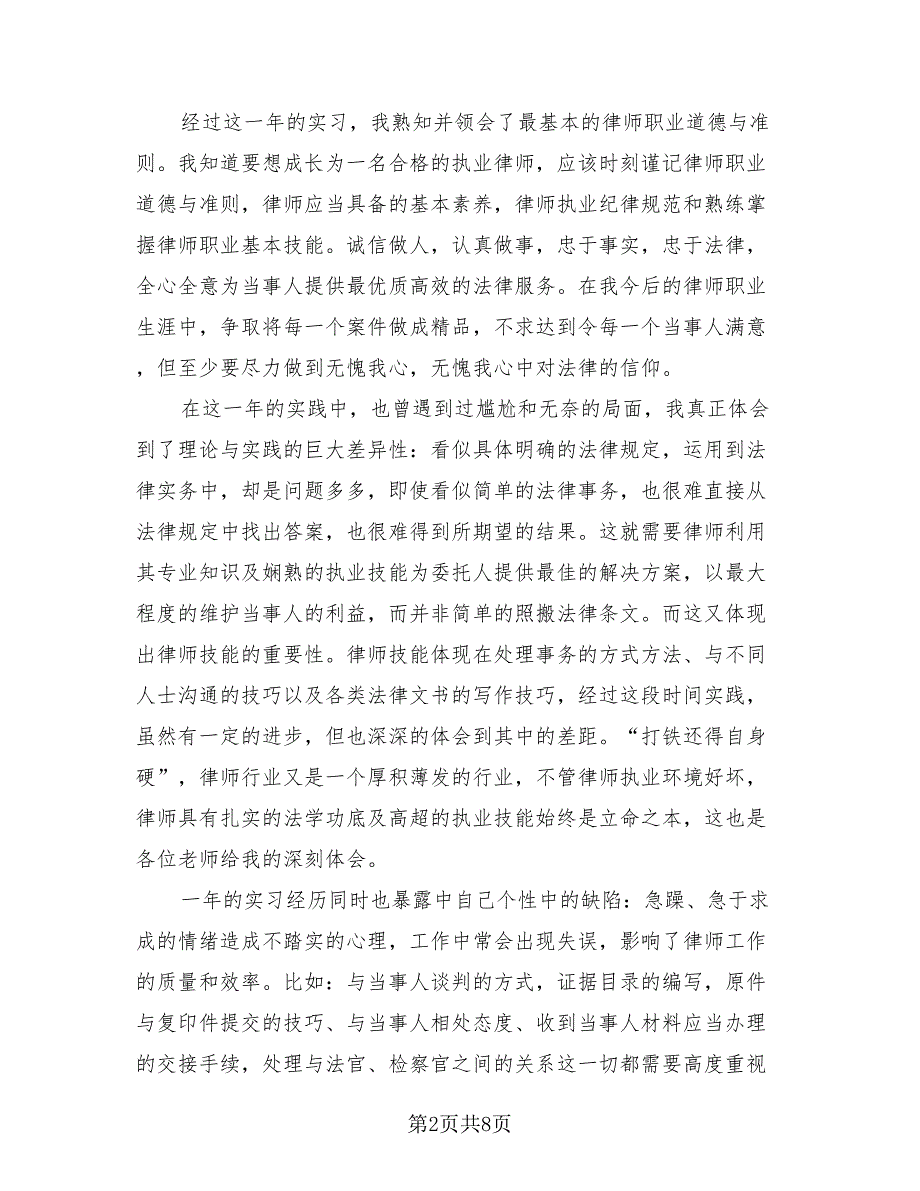 经过这一年的实习，我熟知并领会了最基本的律师职业道德与准
则。我知道要想成长为一名合格的执业律师，应该时刻谨记律师职业
道德与准则，律师应当具备的基本素养，律师执业纪律规范和熟练掌
握律师职业基本技能。诚信做人，认真做事，忠于事实，忠于法律，
全心全意为当事人提供最优质高效的法律服务。在我今后的律师职业
生涯中，争取将每一个案件做成精品，不求达到令每一个当事人满意
，但至少要尽力做到无愧我心，无愧我心中对法律的信仰。
在这一年的实践中，也曾遇到过尴尬和无奈的局面，我真正体会
到了理论与实践的巨大差异性：看似具体明确的法律规定，运用到法
律实务中，却是问题多多，即使看似简单的法律事务，也很难直接从
法律规定中找出答案，也很难得到所期望的结果。这就需要律师利用
其专业知识及娴熟的执业技能为委托人提供最佳的解决方案，以最大
程度的维护当事人的利益，而并非简单的照搬法律条文。而这又体现
出律师技能的重要性。律师技能体现在处理事务的方式方法、与不同
人士沟通的技巧以及各类法律文书的写作技巧，经过这段时间实践，
虽然有一定的进步，但也深深的体会到其中的差距。“打铁还得自身
硬”，律师行业又是一个厚积薄发的行业，不管律师执业环境好坏，
律师具有扎实的法学功底及高超的执业技能始终是立命之本，这也是
各位老师给我的深刻体会。
一年的实习经历同时也暴露中自己个性中的缺陷：急躁、急于求
成的情绪造成不踏实的心理，工作中常会出现失误，影响了律师工作
的质量和效率。比如：与当事人谈判的方式，证据目录的编写，原件
与复印件提交的技巧、与当事人相处态度、收到当事人材料应当办理
的交接手续，处理与法官、检察官之间的关系这一切都需要高度重视
第2页共8页